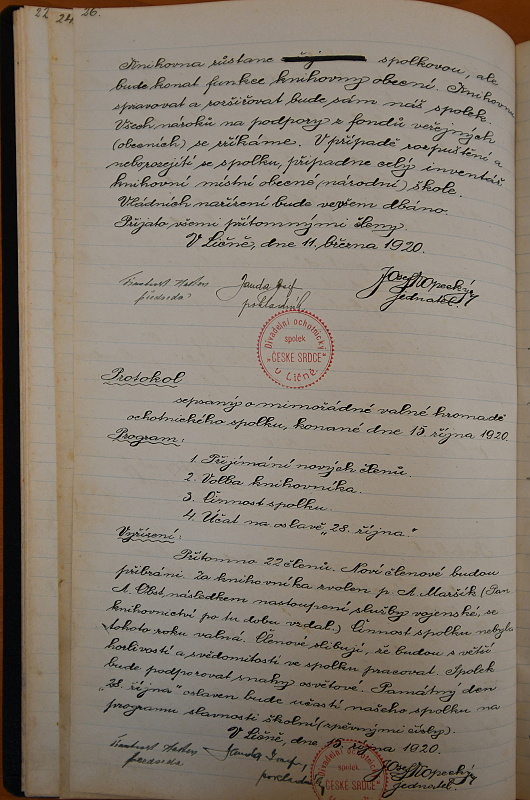 22 24 26.
Knihovna zůstane spolkovou, ale
bude konat funkce knihovny obecní. Knihovnu
spravovat a rozšiřovat bude sám náš spolek.
Všech nároků na podpory z fondů veřejných
(obecních) se zříkáme. V případě rozpuštění a
neborozejití se spolku, připadne celý inventář
knihovní místní obecné (národní) škole.
Vládních nařízení bude vespěm dbáno.
Přijato všemi přítomnými členy.
V Líčně, dne 11. března 1920.
předseda
Janda Josef
pokladník
Josef Kopecký
jednatel.
Divadelní ochotnický
spolek
„ČESKÉ SRDCE"
v Líčně.
Protokol
sepsaný o mimořádné valné hromadě
ochotnického spolku, konané dne 15. října 1920.
Program:
1. Přijímání nových členů.
2. Volba knihovníka.
3. Činnost spolku.
4. Účast na oslavě „28. října."
Vyřízení:
Přítomno 22 členů. Noví členové budou
přibráni. Za knihovníka zvolen p. A. Maršík (Pan
A. Obst, následkem nastoupení služby vojenské, se
knihovnictví po tu dobu vzdal.) Činnost spolku nebyla
tohoto roku valná. Členové slibují, že budou s větší
horlivostí a svědomitostí ve spolku pracovat. Spolek
bude podporovat snahy osvětové. Památný den
„28. října" oslaven bude účastí našeho spolku na
programu slavnosti školní (zpěvnými čísly).
V Líčně, dne 15. října 1920.
předseda
Janda Josef,
pokladník
Divadelní ochotnický
spolek
„ČESKÉ SRDCE"
Josef Kopecký
jednatel.